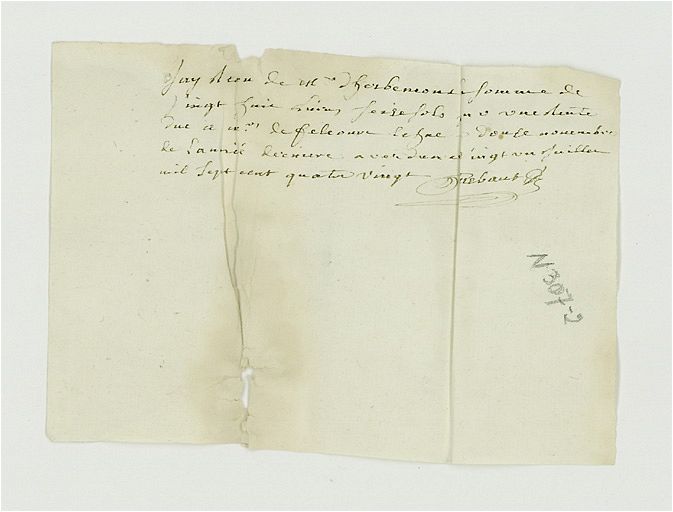 Jay Receu de Mr d'herbemont la somme de
Vingt huit livres seise sols pour une Rente
due a Mrs de echue Douse novembre
de l'année derniere a verdun vingt un Juillet
mil Sept cent quatre vingt Thebaut
N 307-2